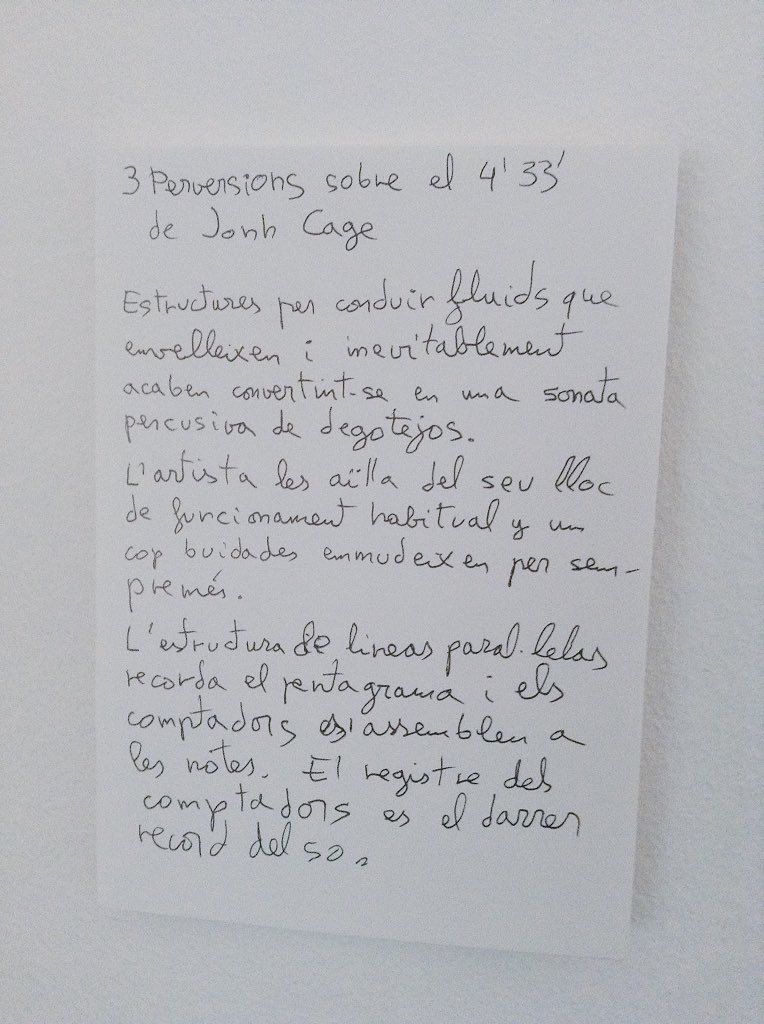 3 Perversions sobre el 4' 33'
de Jonh Cage
Estructures per conduir fluids que
envelleixen i inevitablement
acaben convertint-se en una sonata
percusiva de degotejos.
L'artista les aïlla del seu lloc
de funcionament habitual y un
cop buidades emmudeixen per sem-
premés.
L'estructura de lineas paral·lelas
recorda el pentagrama i els
comptadors s'assemblen a
les notes. El registre dels
comptadors es el darrer
record del so.